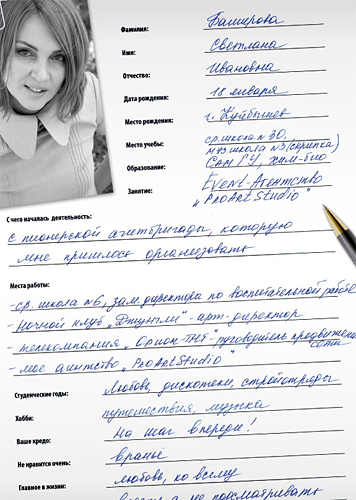 Фамилия: Баширова
Имя: Светлана
Отчество: Ивановна
Дата рождения: 18 января
Место рождения: г. Куйбышев
Место учебы: ср. школа N 30,
муз школа N 3 (скрипка)
Образование: Сам ГУ, хим-био
Занятие: Event-Агентство
„ProArtStudio"
С чего началась деятельность:
с пионерской агитбригады, которую
мне пришлось организовать
Места работы:
- ср. школа N 6, зам. директора по воспитательной работе
- Ночной клуб „Джунгли" - арт-директор
- телекомпания „Орион-ТНТ" руководитель продвижения
сети
- мое агентство „ProArtStudio"
Студенческие годы: Любовь, дискотеки, стройотряды
Хобби: путешествия, музыка
Ваше кредо: На шаг впереди!
Не нравится очень: вранье
Главное в жизни: любовь, ко всему
а не подсматривать